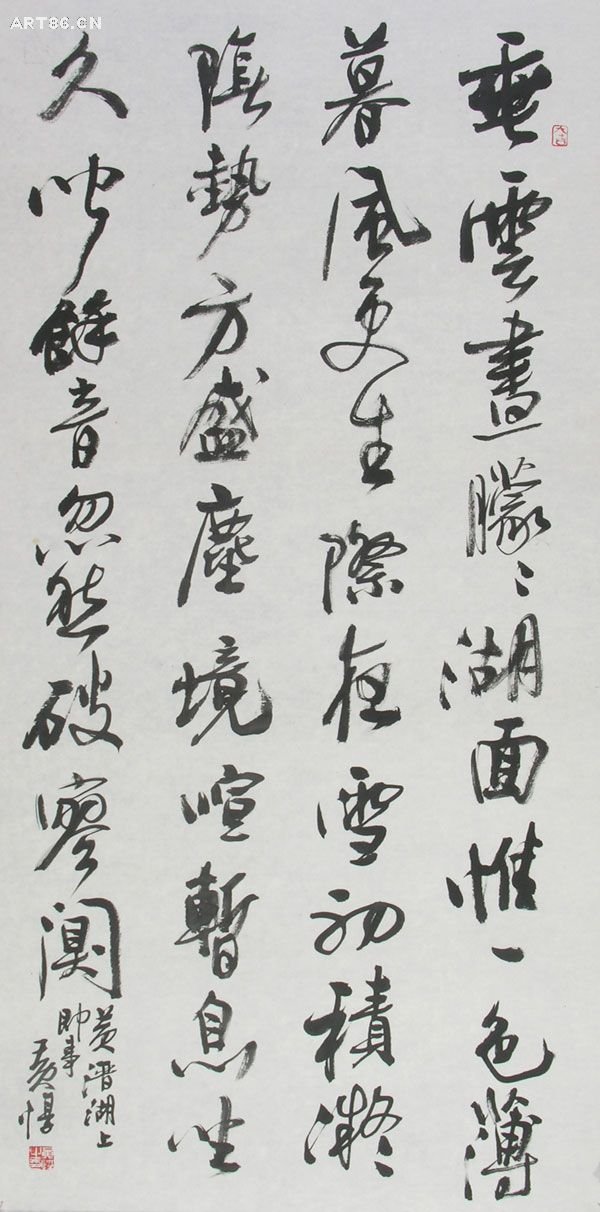 ART86.CN
垂雲晝朦〻湖面惟一色薄
暮風更生際夜雪初積凝
陰勢方盛塵境喧暫息坐
久聞餘音忽然破寥闃
黄溍湖上
即事
黄惇